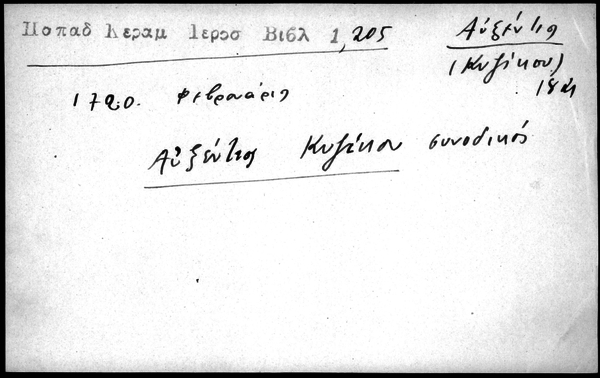 Παπαδ Κεραμ Ιεροσ Βιβλ 1,205
Αὐξέντιος
(Κυζίκου)
1720. Φεβρουάριος
Αὐξέντιος Κυζίκου συνοδικός